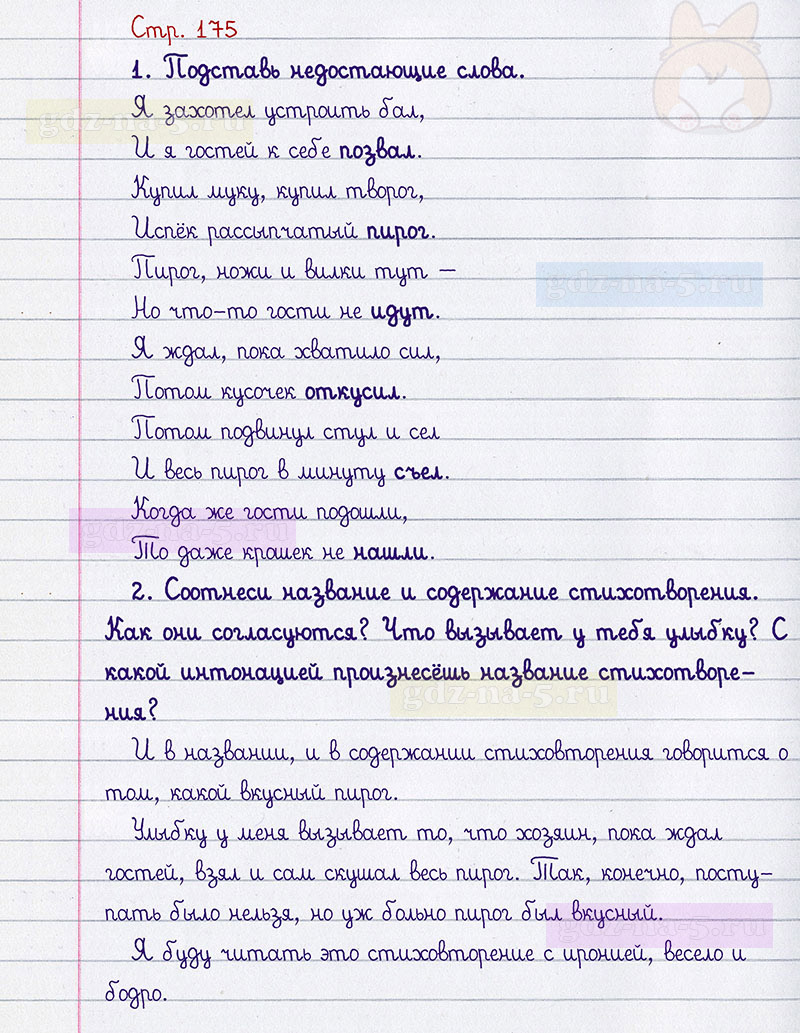 Стр. 175
1. Подставь недостающие слова.
Я захотел устроить бал,
gdz-na-5.ru
И я гостей к себе позвал.
Купил муку, купил творог,
Испёк рассыпчатый пирог.
Пирог, ножи и вилки тут –
gdz-na-5.ru
Но что-то гости не идут.
Я ждал, пока хватило сил,
Потом кусочек откусил.
Потом подвинул стул и сел
И весь пирог в минуту съел.
Когда же гости подошли,
gdz-na-5.ru
То даже крошек не нашли.
2. Соотнеси название и содержание стихотворения.
Как они согласуются? Что вызывает у тебя улыбку? С
какой интонацией произнесёшь название стихотворе-
gdz-na-5.ru
ния?
И в названии, и в содержании стиховторения говорится о
том, какой вкусный пирог.
Улыбку у меня вызывает то, что хозяин, пока ждал
гостей, взял и сам скушал весь пирог. Так, конечно, посту-
пать было нельзя, но уж больно пирог был вкусный.
gdz-na-5.ru
Я буду читать это стиховторение с иронией, весело и
бодро.